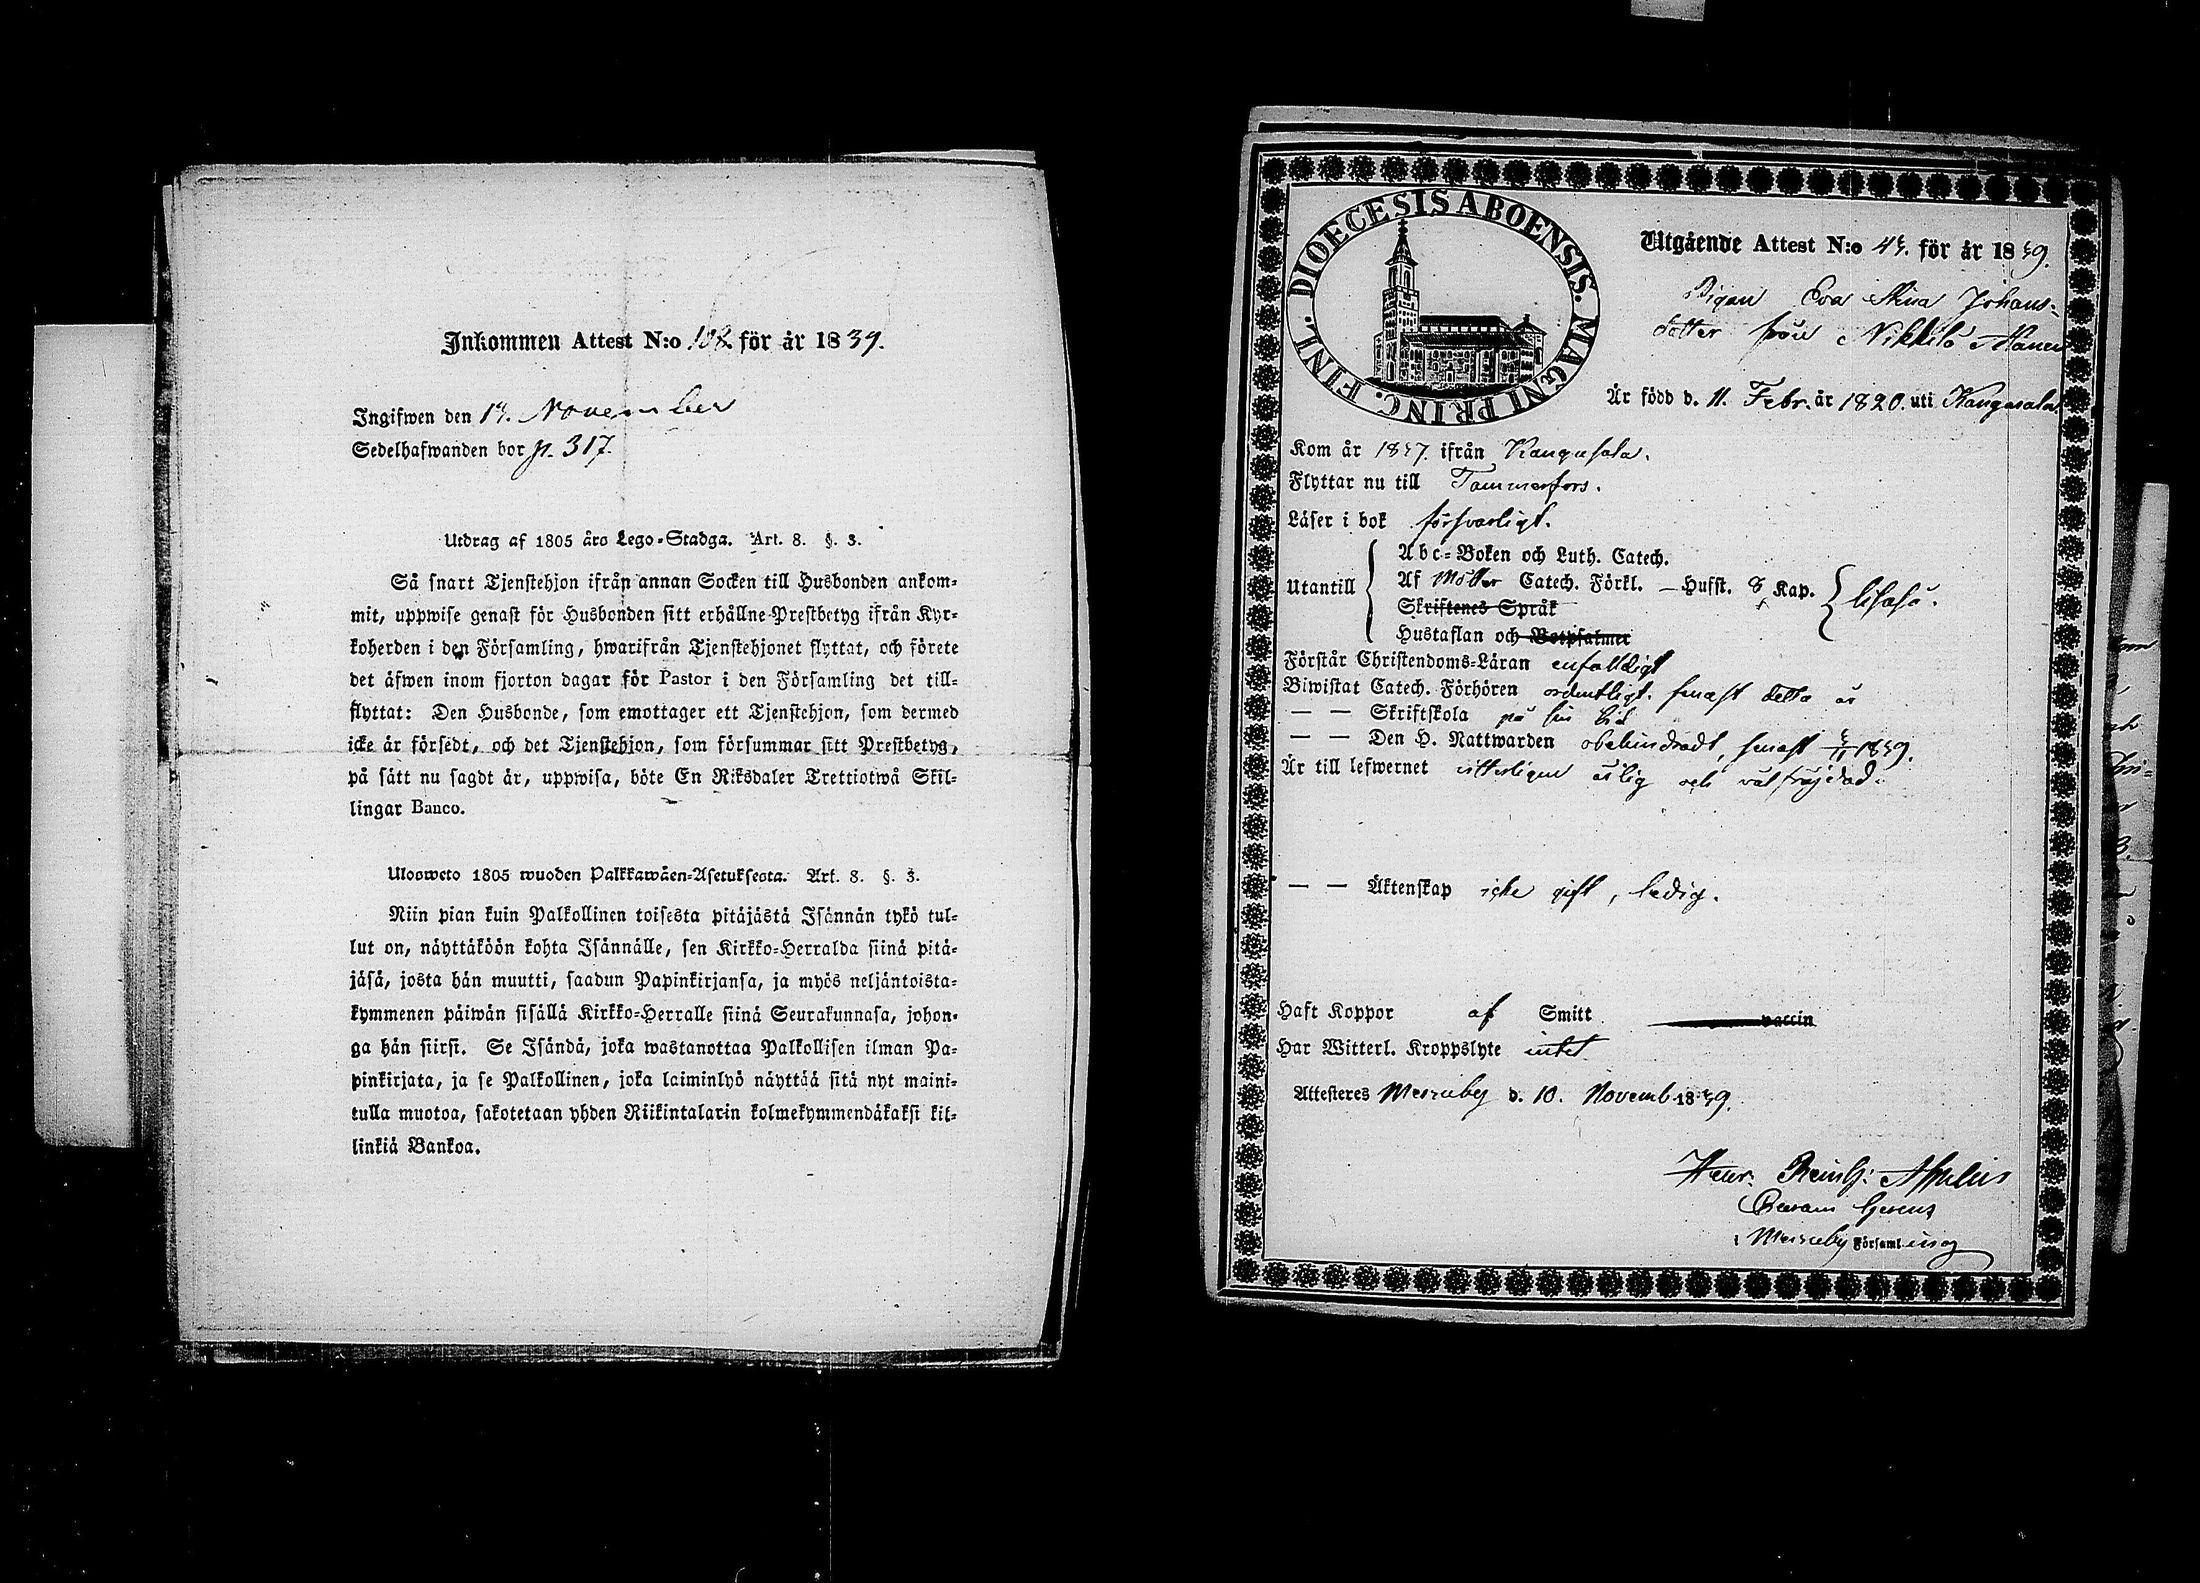 Inkommen Attest N:o 102. för år 1839.
Ingifwen den 14. November
Sedelhafwanden bor p. 317.
Utdrag af 1805 års Lego-Stadga. Art. 8. §. 3.
Så snart Tjenstehjon ifrån annan Socken till Husbonden ankom-
mit, uppwise genast för Husbonden sitt erhållne Prestbetyg ifrån Kyr-
koherden i den Församling, hwarifrån Tjenstehjonet flyttat, och förete
det äfwen inom fjorton dagar för Pastor i den Församling det till-
flyttat: Den Husbonde, som emottager ett Tjenstehjon, som dermed
icke är försedt, och det Tjenstehjon, som försummar sitt Prestbetyg,
på sätt nu sagdt är, uppwisa, böte En Riksdaler Trettiotwå Skil-
lingar Banco.
Uloswето 1805 wuoden Palkkawäen-Asetuksesta. Art. 8. §. 3.
Niin pian kuin Palkollinen toisesta pitäjästä Isännän tykö tul-
lut on, näyttäköön kohta Isännälle, sen Kirkko-Herralda siinä pitä-
jäsä, josta hän muutti, saadun Papinkirjansa, ja myös neljäntoista-
kymmenen päiwän sisällä Kirkko-Herralle siinä Seurakunnasa, johon-
ga hän siirsi. Se Isändä, joka wastanottaa Palkollisen ilman Pa-
pinkirjata, ja se Palkollinen, joka laiminlyö näyttää sitä nyt maini-
tulla muotoa, sakotetaan yhden Riikintalarin kolmekymmendäkaksi kil-
linkiä Bankoa.
DIOECESIS ABOENSIS. MAGNI PRINC. FINL.
Utgående Attest N:o 43. för år 1839.
Pigan Eva Stina Johans-
dotter från Nikkilä Hanen
Är född d. 11. Febr. år 1820. uti Kangasala
Kom år 1837. ifrån Kangasala.
Flyttar nu till Tammerfors.
Läser i bok försvarligt.
Utantill
Abc-Boken och Luth. Catech.
Af Möller Catech. Förkl. — Husst. 8 Kap.
Skriftenes Språk
Hustaflan och Botpsalmer
likaså.
Förstår Christendoms-Läran enfaldigt
Biwistat Catech. Förhören ordentligt. senast detta år
— — Skriftskola på sin tid
— — Den H. Nattwarden obehindradt, senast 3/11 1839.
Är till lefwernet sitterligen ärlig och välfräjdad.
— — Äktenskap icke gift, ledig.
Haft Koppor af Smitt vaccin
Har Witterl. Kroppslyte intet
Attesteres Messuby d. 10. Novemb. 1839.
Henr. Reinh:
i Messuby Församling